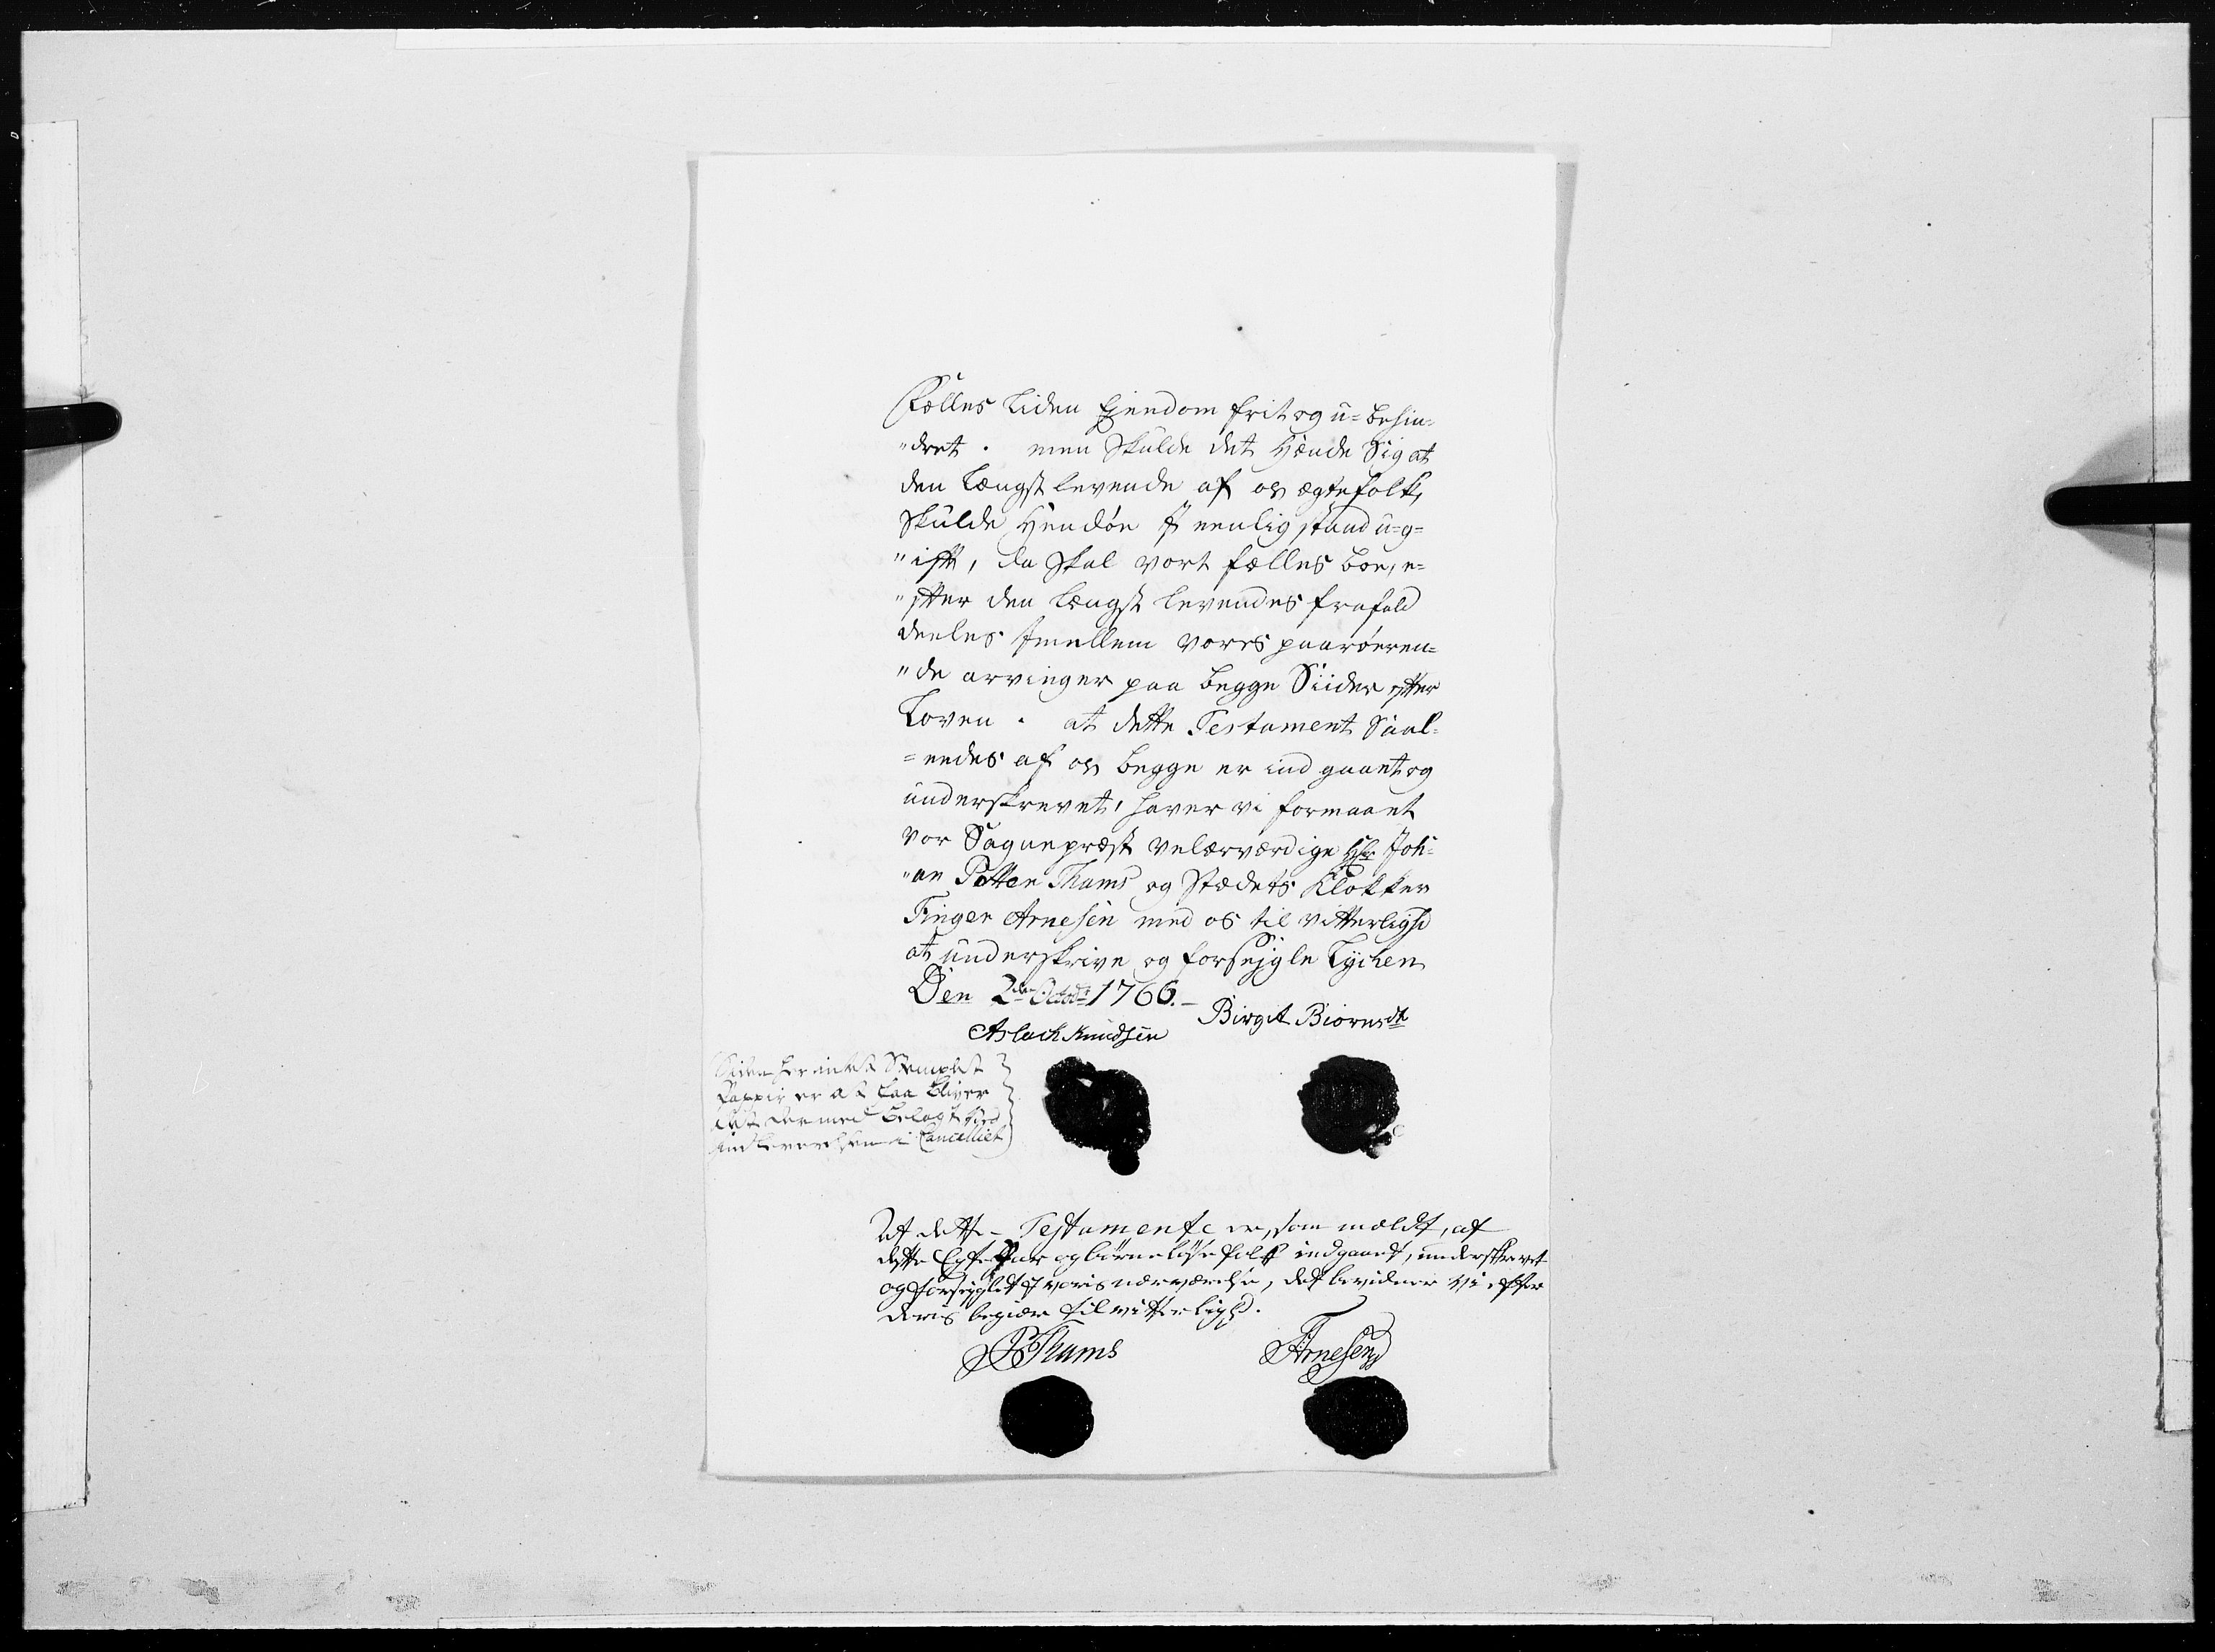 Fælles liden Ejendom frit og u-behin-
"dret. men Skulde det Hænde Sig at
den Længst levende af os ægtefolk,
Skulde Hendøe I eenlig stand u-g-
"ift, da Skal vort fælles boe, e-
"fter den længst levendes frafald
deeles Imellem vores paarørren-
"de arvinger paa begge Siider efter
Loven. at dette Testament Saal-
=eedes af os begge er ind gaaet og
underskrevet, haver vi formaaet
vor Sognepræst velærværdige Hr Joh-
"an Petter Thams og Stædets Klokker
Finger Arnesen med os til vitterlighd
at underskrive og forseigle Lychen
Den 2den Octobr 1766.
Aslach Knudsen Birgit Biørnsdtr
Siden her intet Stemplet
Pappiir er at faa bliver
det dermed belagt ved
indleverelsen i Cancelliet
At dette Testamente er, som meldt, af
dette Egte Par og børneløse folk indgaaet, underskrevet
og forseiglet I voris nærværelse, det bevidner vi efter
deris begiær til vitterlighd.
JPThams FArnesen